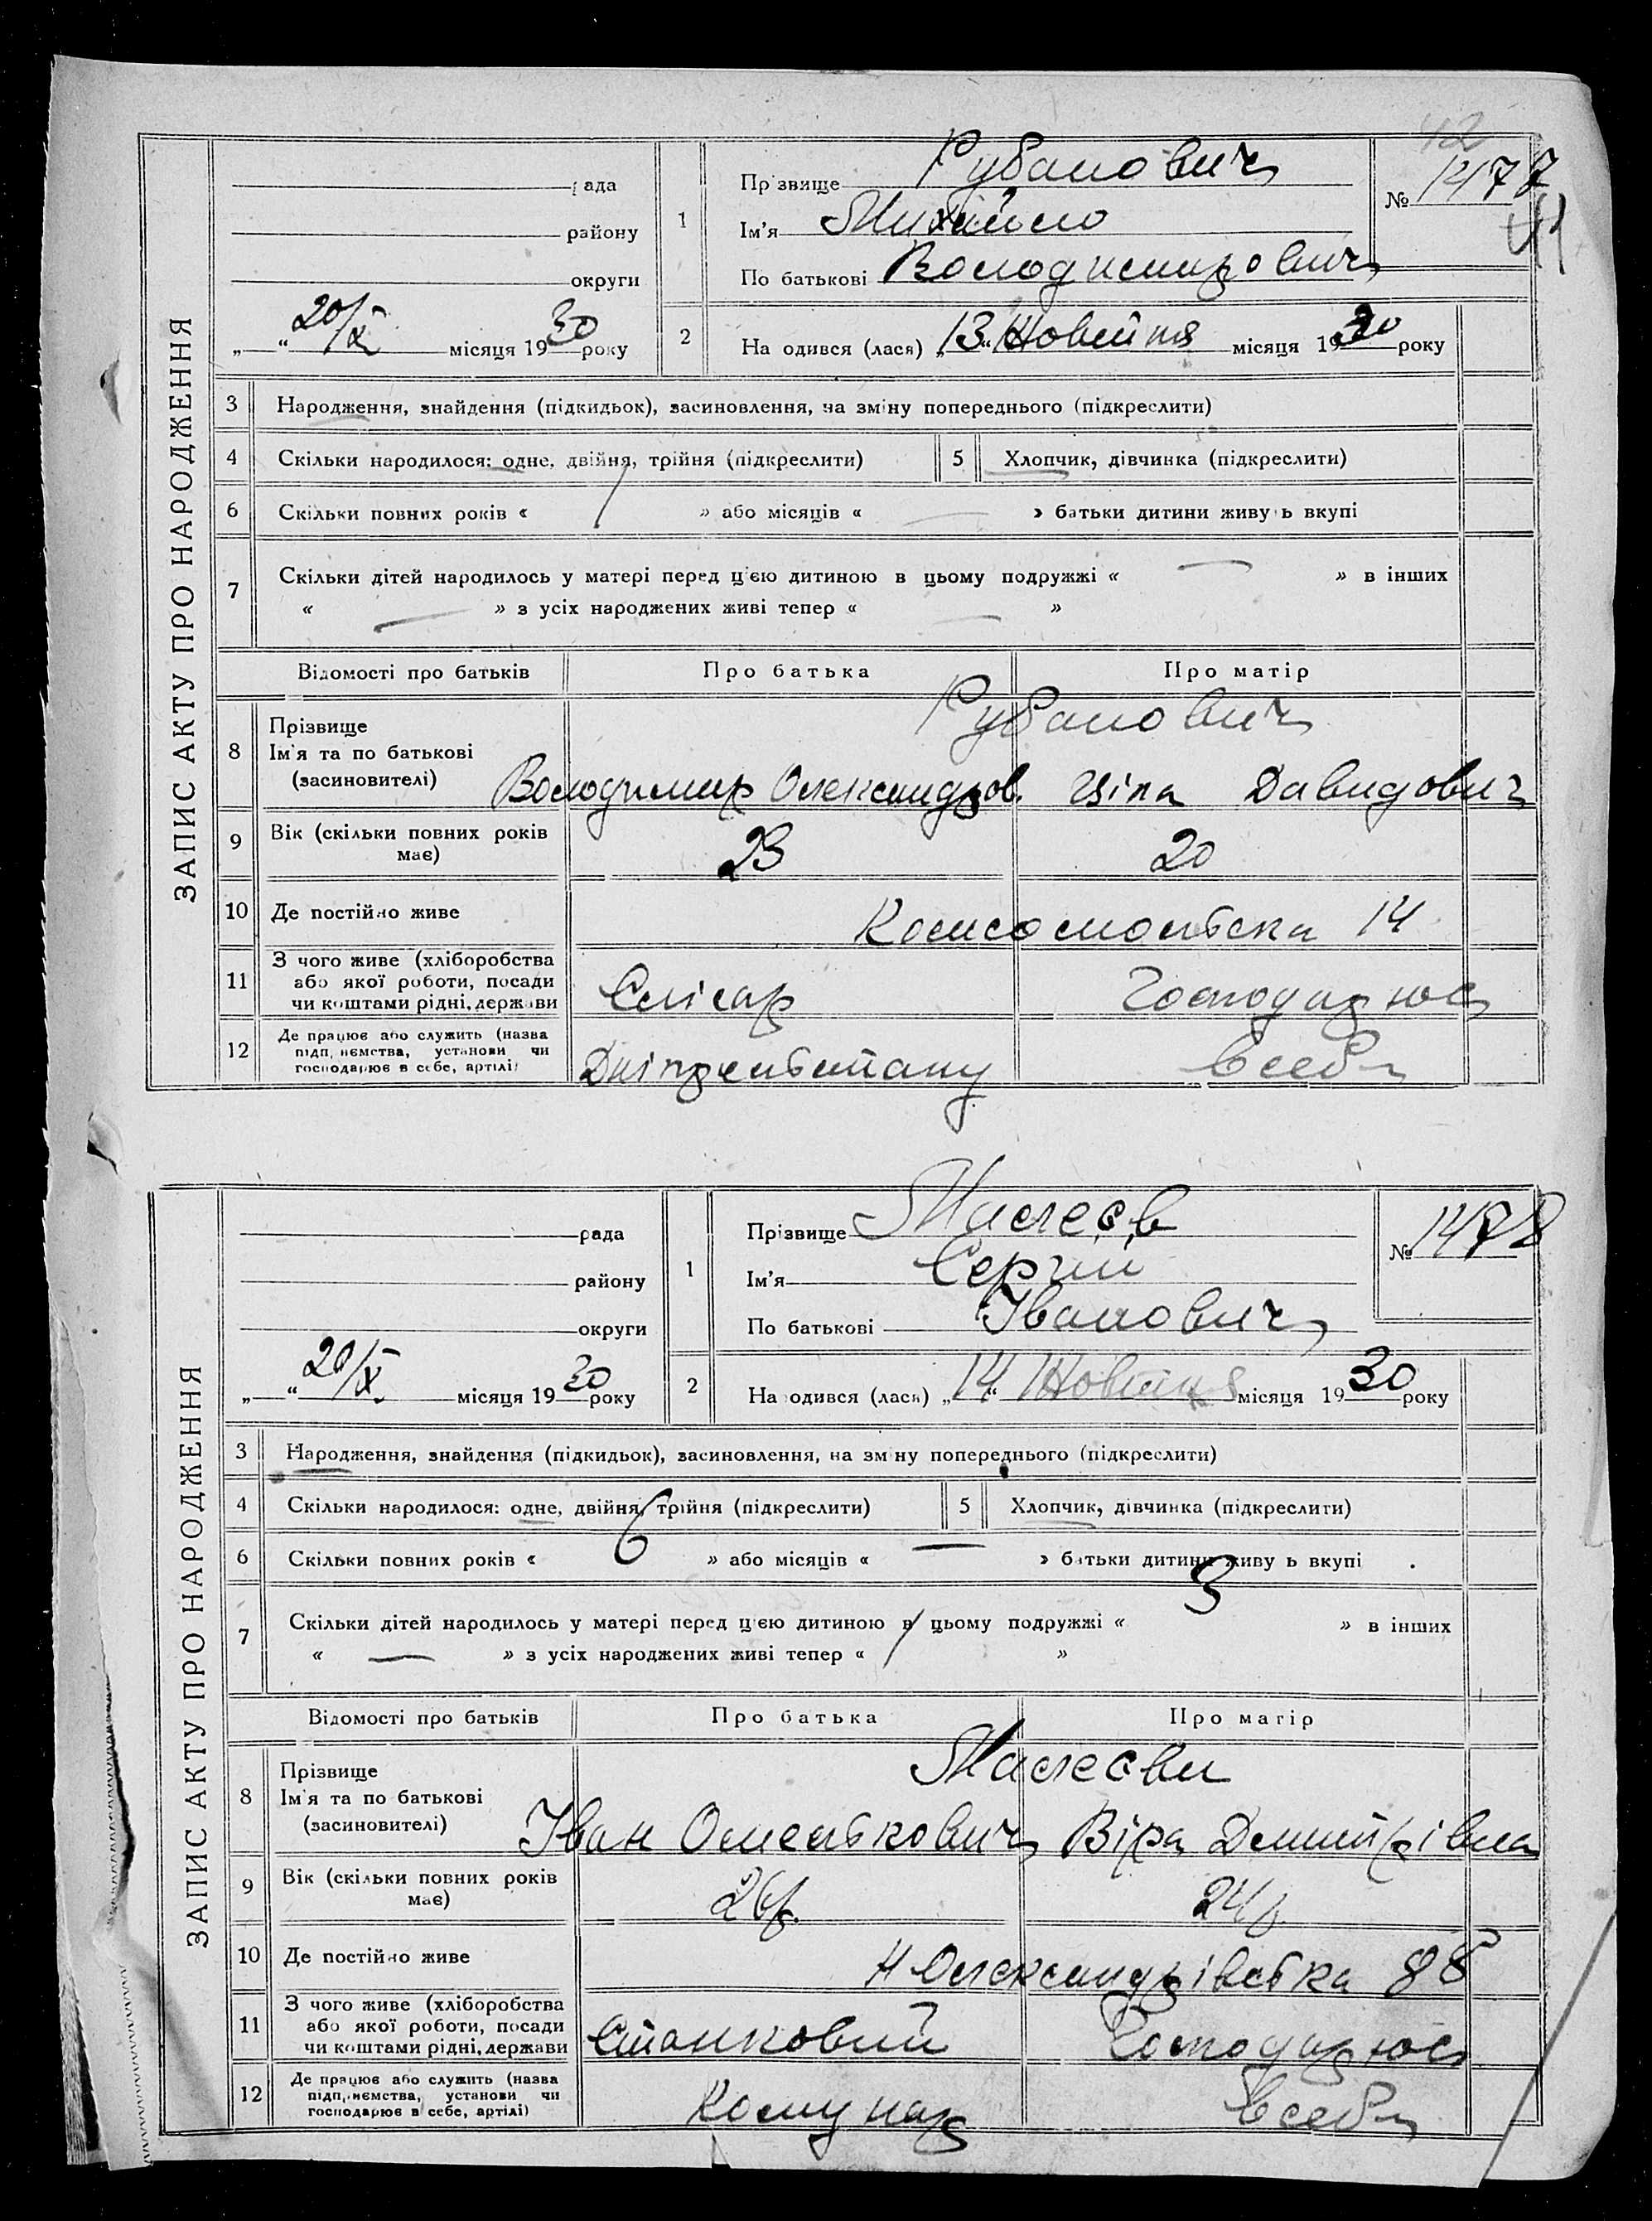 42
ЗАПИС АКТУ ПРО НАРОДЖЕННЯ
рада
району
округи
„ “ 20/X місяця 1930 року
1
Прізвище Рубанович
Ім'я Михайло
По батькові Володимирович
№ 1477
41
2
На одився (лася) „13“ Жовтня місяця 1930 року
3 Народження, знайдення (підкидьок), засиновлення, на зміну попереднього (підкреслити)
4 Скільки народилося: одне, двійня, трійня (підкреслити) 5 Хлопчик, дівчинка (підкреслити)
6 Скільки повних років « 1 » або місяців « — » батьки дитини живу ь вкупі
7 Скільки дітей народилось у матері перед цією дитиною в цьому подружжі « — » в інших
« — » з усіх народжених живі тепер « — »
Відомості про батьків Про батька Про матір
8 Прізвище
Ім'я та по батькові
(засновителі)
Рубанович
Володимир Олександров. Ціпа Давидович
9 Вік (скільки повних років
має)
23 20
10 Де постійно живе Комсомольська 14
11 З чого живе (хліборобства
або якої роботи, посади
чи коштами рідні, держави
Слісар Господарює
12 Де працює або служить (назва
підп, иємства, установи чи
господарює в себе, артілі)
в себе
ЗАПИС АКТУ ПРО НАРОДЖЕННЯ
рада
району
округи
„ “ 20/X місяця 1930 року
1
Прізвище Малєєв
Ім'я Сергій
По батькові Іванович
№ 1478
2
На одився (лася) „14“ Жовтня місяця 1930 року
3 Народження, знайдення (підкидьок), засиновлення, на зм ну попереднього (підкреслити)
4 Скільки народилося: одне, двійня, трійня (підкреслити) 5 Хлопчик, дівчинка (підкреслити)
6 Скільки повних років « 6 » або місяців « — » батьки дитини живу ь вкупі
7 Скільки дітей народилось у матері перед цією дитиною в цьому подружжі « 3 » в інших
« — » з усіх народжених живі тепер « 1 »
Відомості про батьків Про батька Про матір
8 Прізвище
Ім'я та по батькові
(засиновителі)
Малєєви
Іван Омелькович Віра Дмитрівна
9 Вік (скільки повних років
має)
26р. 24р.
10 Де постійно живе Н Олександрівська 88
11 З чого живе (хліборобства
або якої роботи, посади
чи коштами рідні, держави
Станковий Господарює
12 Де працює або служить (назва
підп, иємства, установи чи
господарює в себе, артілі)
Комунар в себе